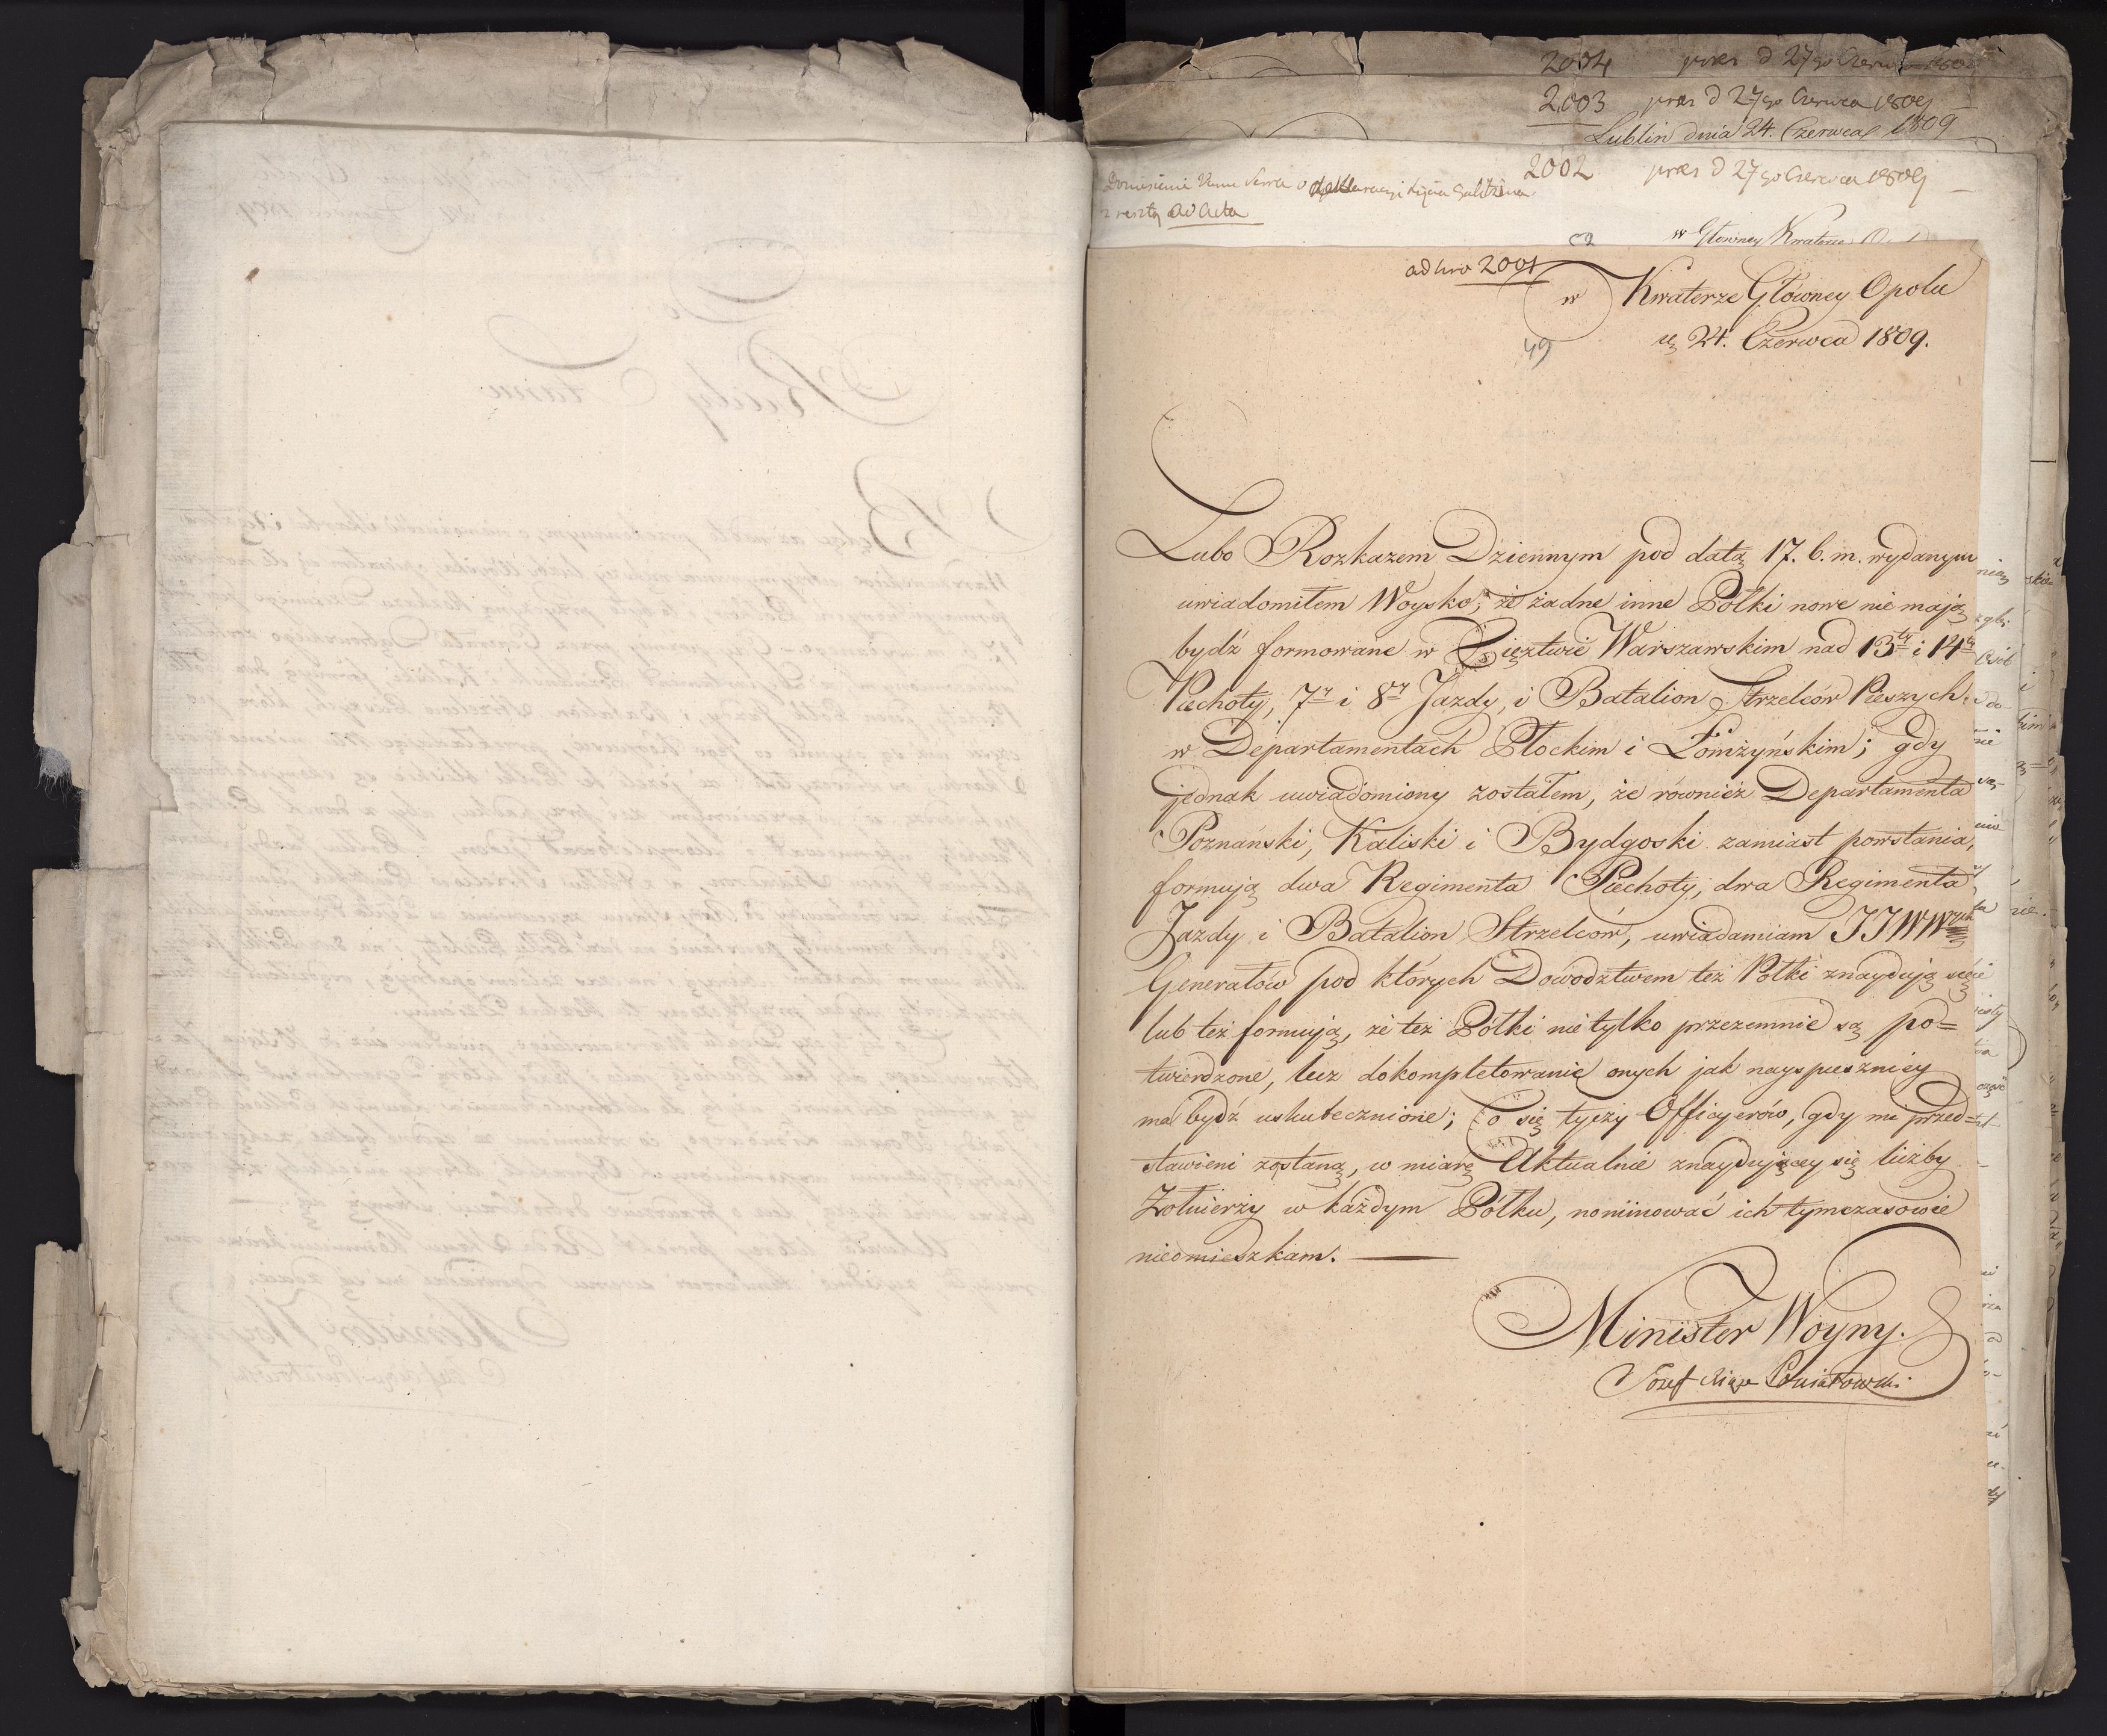 2004 pres d 27go Czerwca 1809
2003 pres d 27go Czerwca 1809
Lublin dnia 24. Czerwca 1809
2002 pres d 27go Czerwca 1809
z resztą ad acta
w Głowney Kwaterze
52
ad Nro 2001
w Kwaterze Główney Opolu
49
dę 24. Czerwca 1809.
Lubo Rozkazem Dziennym pod datą 17. b. m. wydanym
uwiadomiłem Woysko, że żadne inne Pòłki nowe nie mają
bydź formowane w Xięztwie Warszawskim nad 13ty i 14ty
Piechoty, 7y i 8y Jazdy, i Batalion Strzelców Pieszych
w Departamentach Płockim i Łomżyńskim; gdy
jednak uwiadomiony zostałem, że równieź Departamenta
Poznański, Kaliski i Bydgoski zamiast powstania,
formują dwa Regimenta Piechoty, dwa Regimenta
Jazdy i Batalion Strzelców, uwiadamiam JJWWch
Generałów pod których Dowodztwem też Pòłki znaydują się
lub też formują, że też Pòłki nie tylko przezemnie są po=
twierdzone, lecz dokompletowanie onych jak nayspieszniey
ma bydź uskutecznione; Co się tyczy Officyerów, gdy mi przed=
stawieni zostaną, w miarę Aktualnie znayduiącey się liczby
Zołnierzy w każdym Pòłku, nominować ich tymczasowie
nieomieszkam.
Minister Woyny.
Jozef Xiąże Poniatowski